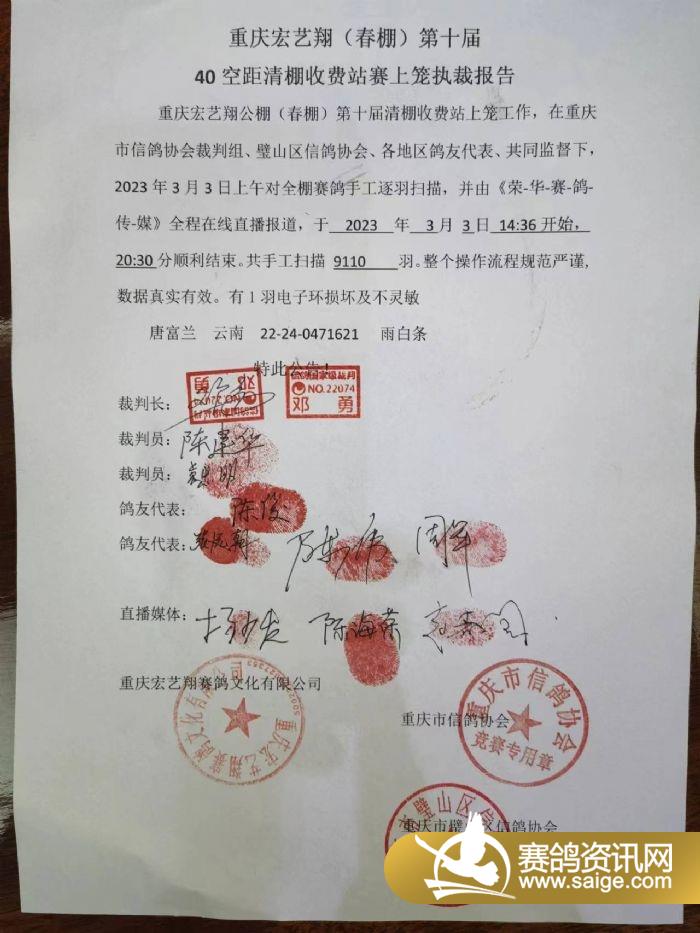 重庆宏艺翔（春棚）第十届
40空距清棚收费站赛上笼执裁报告
重庆宏艺翔公棚（春棚）第十届清棚收费站上笼工作，在重庆
市信鸽协会裁判组、璧山区信鸽协会、各地区鸽友代表、共同监督下，
2023年3月3日上午对全棚赛鸽手工逐羽扫描，并由《荣-华-赛-鸽-
传-媒》全程在线直播报道，于 2023 年 3月 3日 14:36开始，
20:30分顺利结束。共手工扫描 9110 羽。整个操作流程规范严谨，
数据真实有效。有1羽电子环损坏及不灵敏
唐富兰 云南 22-24-0471621 雨白条
特此公告！
NO.22074
邓勇
裁判长：
裁判员：陈建华
裁判员：
鸽友代表：陈俊
鸽友代表： 周军
直播媒体： 陈海荣
重庆宏艺翔赛鸽文化有限公司
重庆宏艺翔赛鸽文化有限公司
重庆市信鸽协会
重庆市信鸽协会
竞赛专用章
重庆市璧山区信鸽协会
赛鸽资讯网
www.saige.com